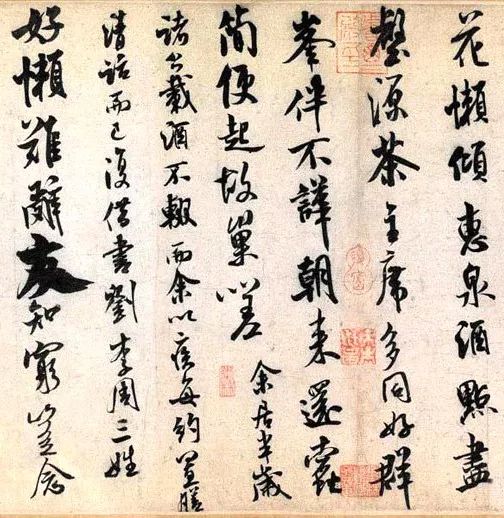 花懶傾惠泉酒點盡
壑源茶主席多同好群
峯伴不譁朝来還蠹
簡便起故巢嗟 余居半歲
諸公載酒不輟而余以疾每約置膳
清話而已復借書劉李周三姓
好懶難辭友知窮豈念